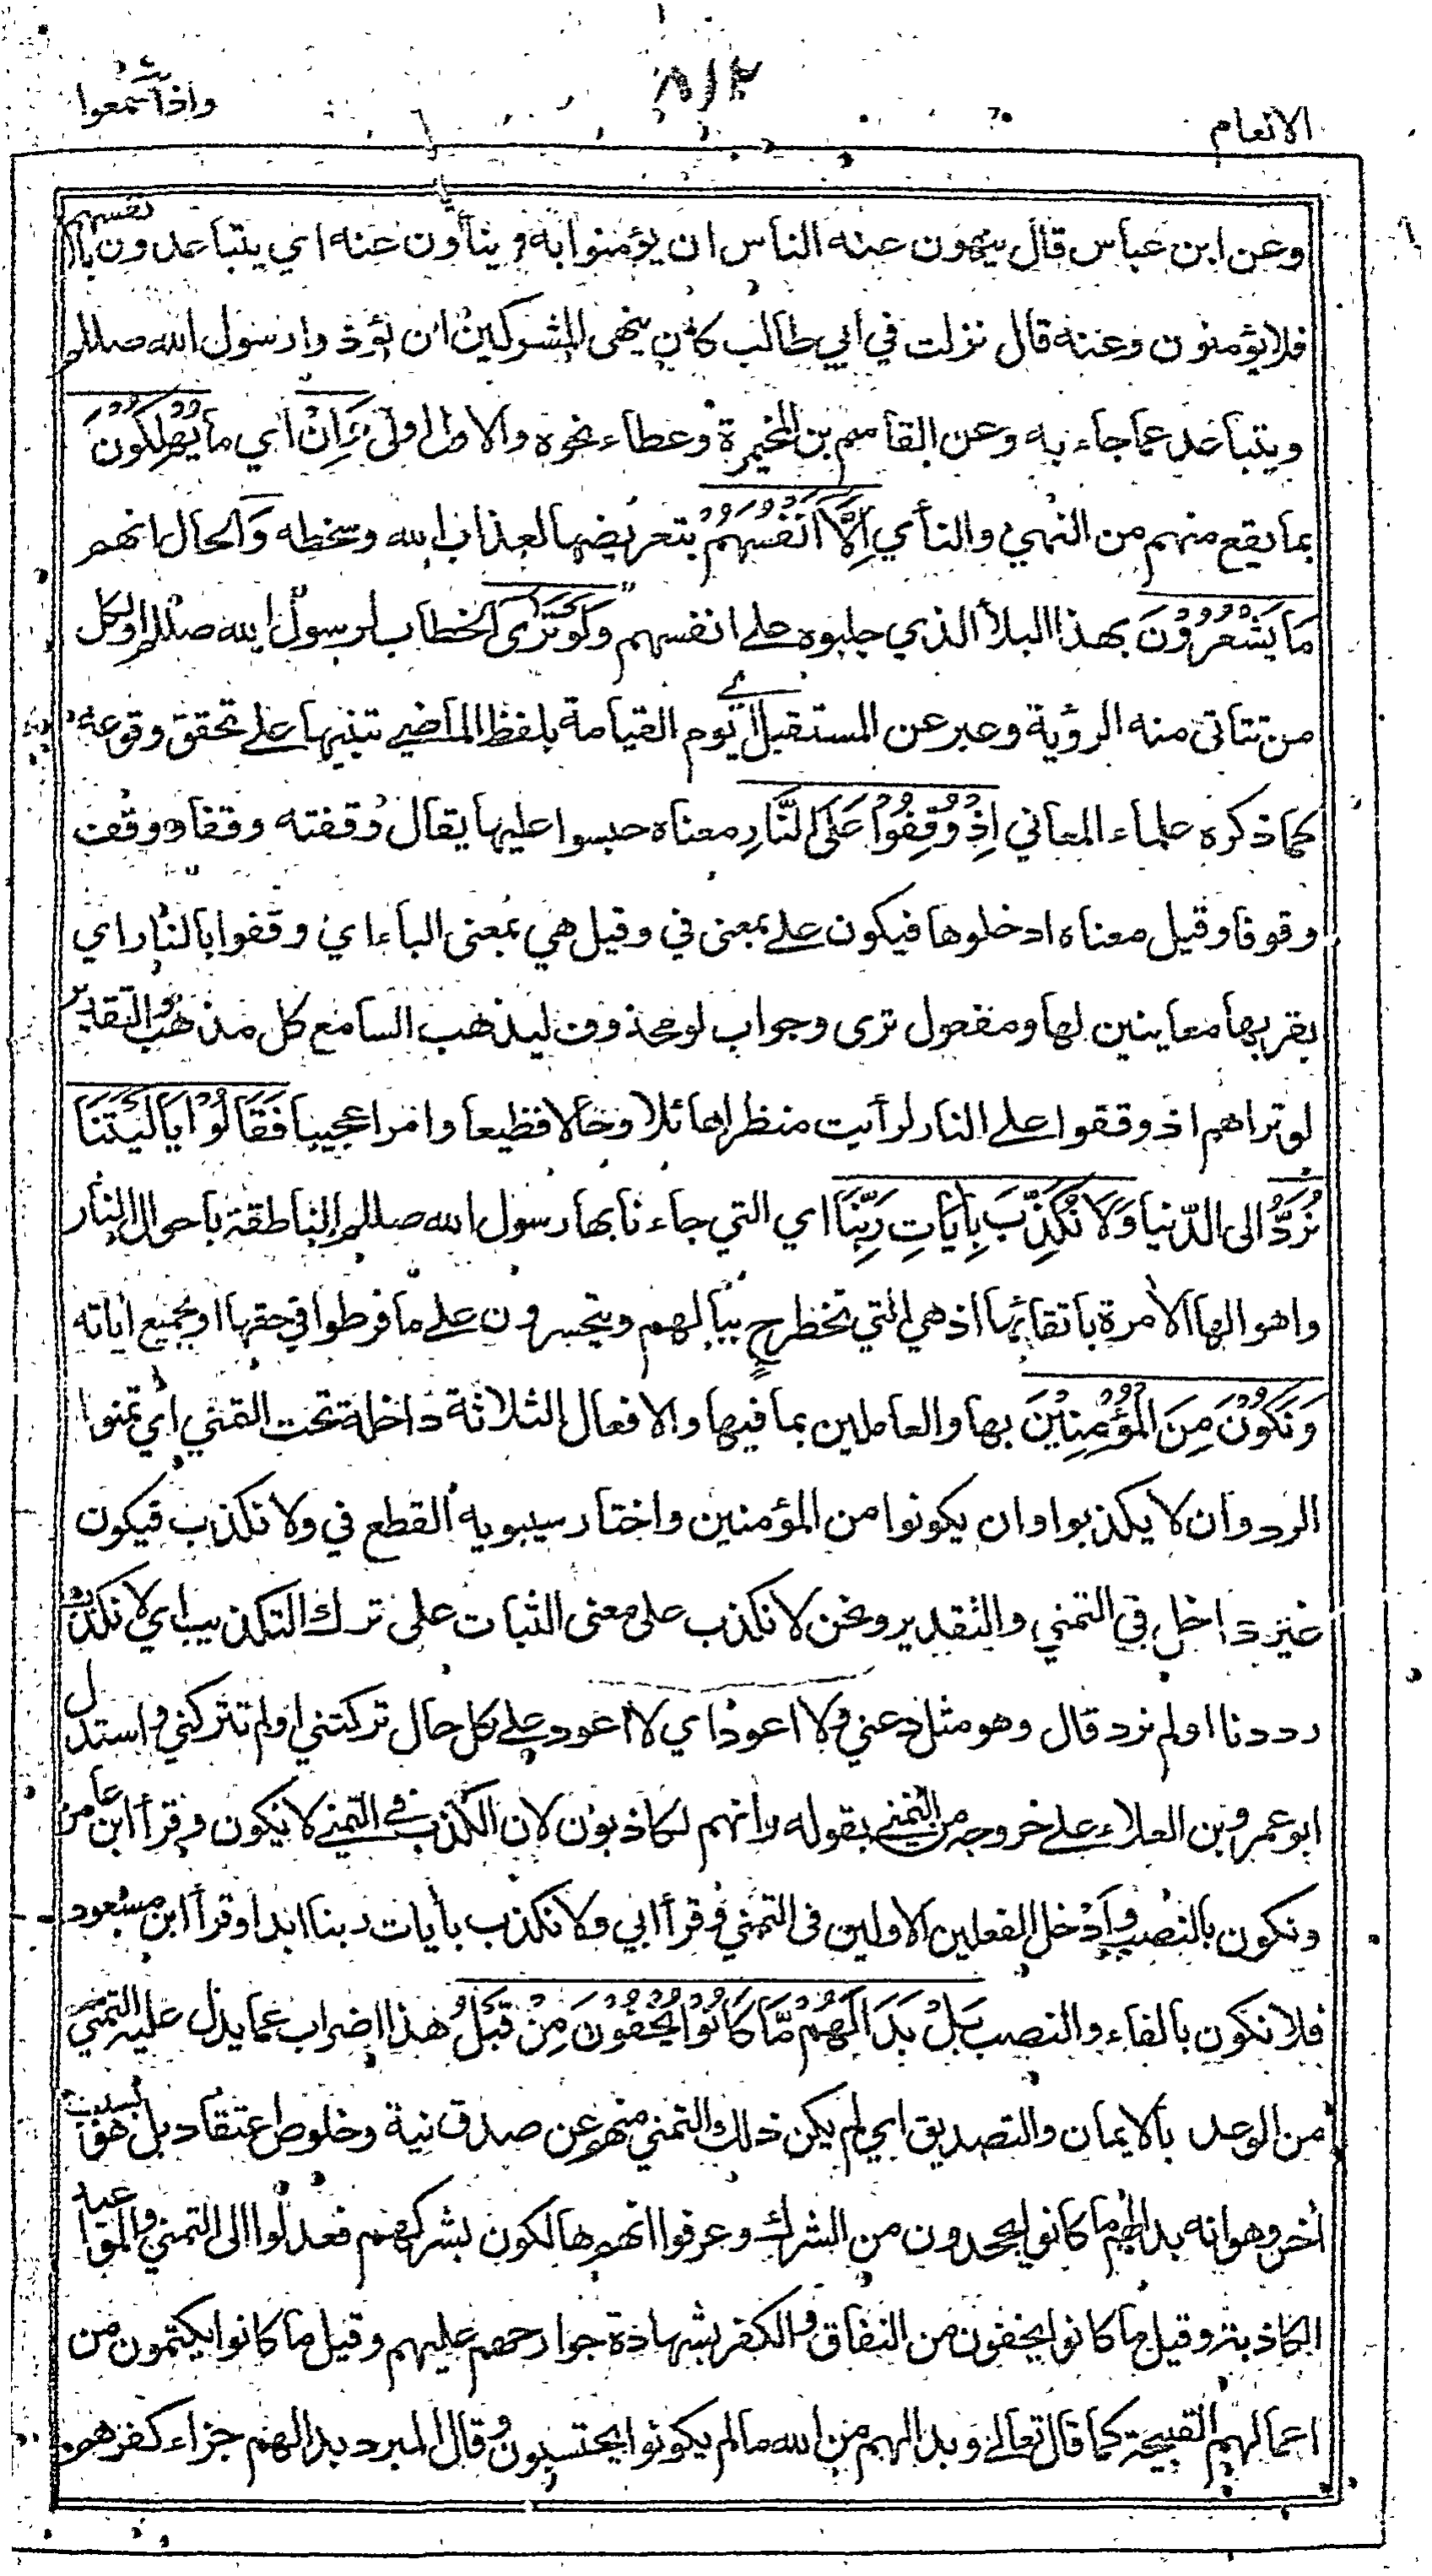 واذا سمعوا
٨١٢
الانعام
وعن ابن عباس قال ينهون عنه الناس ان يؤمنوا به وينأون عنه اي يتباعدون بانفسهم
فلا يؤمنون وعنه قال نزلت في ابي طالب كان ينهى المشركين ان يؤذوا رسول الله صللم
ويتباعد عما جاء به وعن القاسم بن المخيمرة وعطاء نحوه والاول اولى وَاِنْ اي ما يُهْلِكُوْنَ
بما يقع منهم من النهي والنأي اِلَّا اَنْفُسَهُمْ بتعريضها لعذاب الله وسخطه وَ الحال انهم
مَا يَشْعُرُوْنَ بهذا البلاء الذي جلبوه على انفسهم وَلَوْ تَرٰى الخطاب لرسول الله صللم او لكل
من تتاتى منه الرؤية وعبر عن المستقبل اي يوم القيامة بلفظ الماضي تنبيها على تحقق وقوعه
كما ذكره علماء المعاني اِذْ وُقِفُوْا عَلَى النَّارِ معناه حبسوا عليها يقال وقفته وقفا ووقف
وقوفا وقيل معناه ادخلوها فيكون على بمعنى في وقيل هي بمعنى الباء اي وقفوا بالنار اي
بقربها معاينين لها ومفعول ترى وجواب لو محذوف ليذهب السامع كل مذهب والتقدير
لو تراهم اذ وقفوا على النار لرأيت منظرا هائلا وحالا فظيعا وامرا عجيبا فَقَالُوْا يَا لَيْتَنَا
نُرَدُّ الى الدّنيا وَلَا نُكَذِّبَ بِاٰيَاتِ رَبِّنَا اي التي جاءنا بها رسول الله صللم الناطقة باحوال النار
واهوالها الامرة باتقائها اذ هي التي تخطر ح ببالهم ويتحسرون على ما فرطوا في حقها او بجميع اياته
وَنَكُوْنَ مِنَ الْمُؤْمِنِيْنَ بها والعاملين بما فيها والافعال الثلاثة داخلة تحت التمني اي تمنوا
الرد وان لا يكذبوا وان يكونوا من المؤمنين واختار سيبويه القطع في ولا نكذب فيكون
غير داخل في التمني والتقدير ونحن لا نكذب على معنى الثبات على ترك التكذيب اي لا نكذب
رددنا او لم نرد قال وهو مثل دعني ولا اعود اي لا اعود على كل حال تركتني او لم تتركني واستدل
ابو عمرو بن العلاء على خروجه من التمني بقوله وانهم لكاذبون لان الكذب في التمني لا يكون وقرأ ابن عامر
ونكون بالنصب وادخل الفعلين الاولين في التمني وقرأ ابي ولا نكذب بأيات ربنا ابدا وقرأ ابن مسعود
فلا نكون بالفاء والنصب بَلْ بَدَا لَهُمْ مَّا كَانُوْا يُخْفُوْنَ مِنْ قَبْلُ هذا اضراب عما يدل عليه التمني
من الوعد بالايمان والتصديق اي لم يكن ذلك التمني منهم عن صدق نية وخلوص اعتقاد بل هو لسبب
أخر وهو انه بدا لهم ما كانوا يجحدون من الشرك وعرفوا انهم هالكون بشركهم فعدلوا الى التمني والمواعيد
الكاذبة وقيل ما كانوا يخفون من النفاق والكفر بشهادة جوارحهم عليهم وقيل ما كانوا يكتمون من
اعمالهم القبيحة كما قال تعالى وبدا لهم من الله ما لم يكونوا يحتسبون وقال المبرد بدا لهم جزاء كفرهم